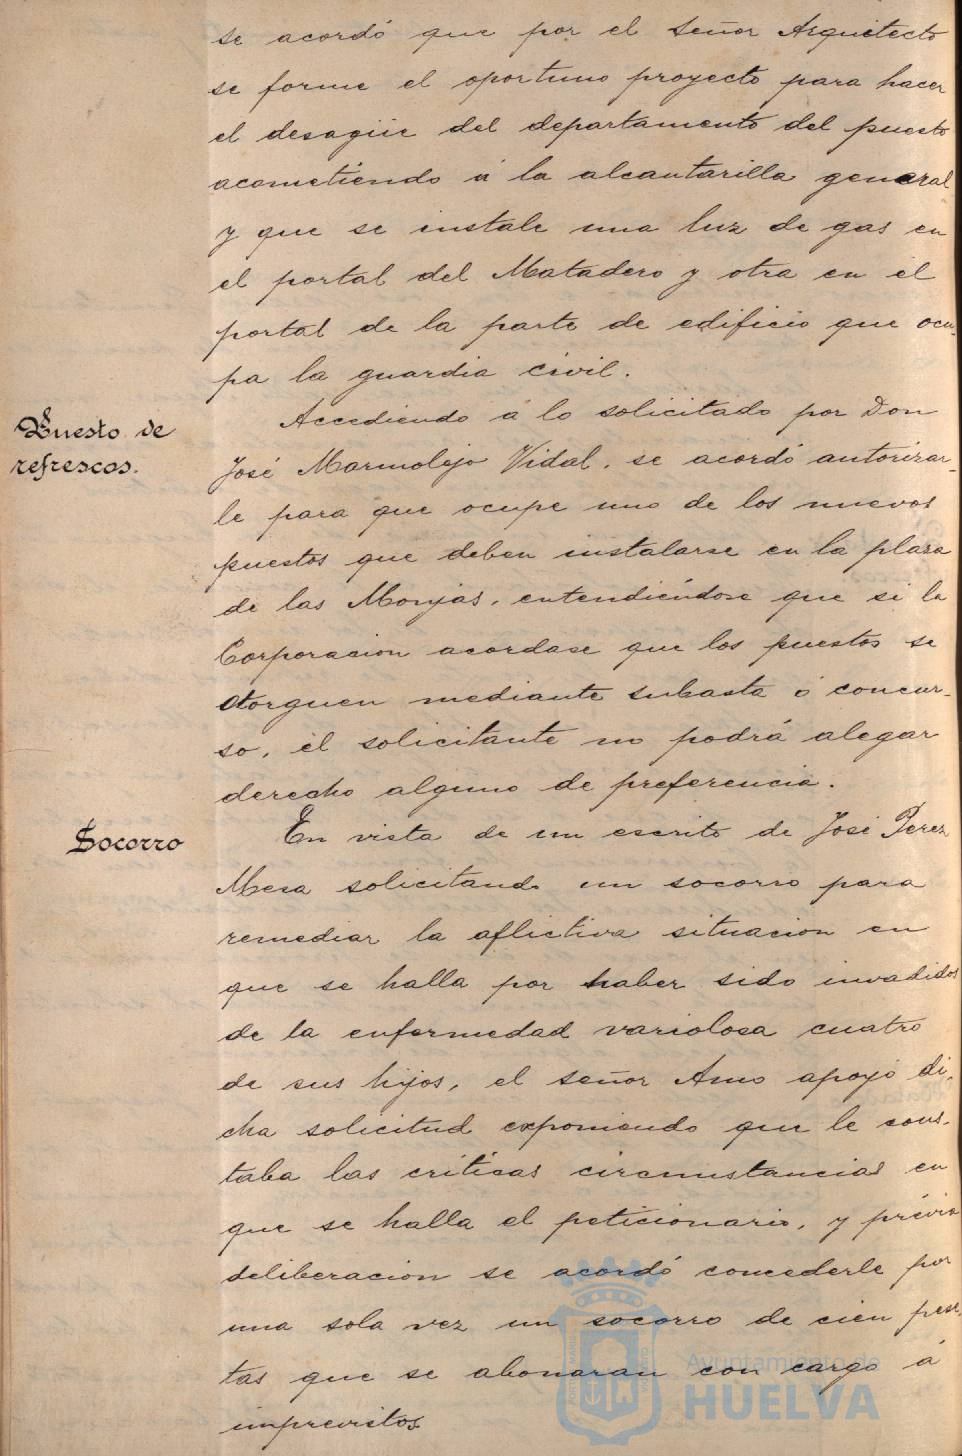 se acordó que por el señor Arquitecto
se forme el oportuno proyecto para hacer
el desagüe del departamento del puesto
acometiendo á la alcantarilla general
y que se instale una luz de gas en
el portal del Matadero y otra en el
portal de la parte de edificio que ocu-
pa la guardia civil.
Puesto de
refrescos.
Accediendo á lo solicitado por Don
José Marmolejo Vidal, se acordó autorizar-
le para que ocupe uno de los nuevos
puestos que deben instalarse en la plaza
de las Monjas, entendiéndose que si la
Corporacion acordase que los puestos se
otorguen mediante subasta ó concur-
so, el solicitante no podrá alegar
derecho alguno de preferencia.
Socorro
En vista de un escrito de José Perez
Mesa solicitando un socorro para
remediar la aflictiva situacion en
que se halla por haber sido invadidos
de la enfermedad variolosa cuatro
de sus hijos, el señor Amo apoyó di-
cha solicitud exponiendo que le cons-
taba las críticas circunstancias en
que se halla el peticionario, y prévia
deliberacion se acordó concederle por
una sola vez un socorro de cien pese-
tas que se abonaran con cargo á
imprevistos
Ayuntamiento de
HUELVA